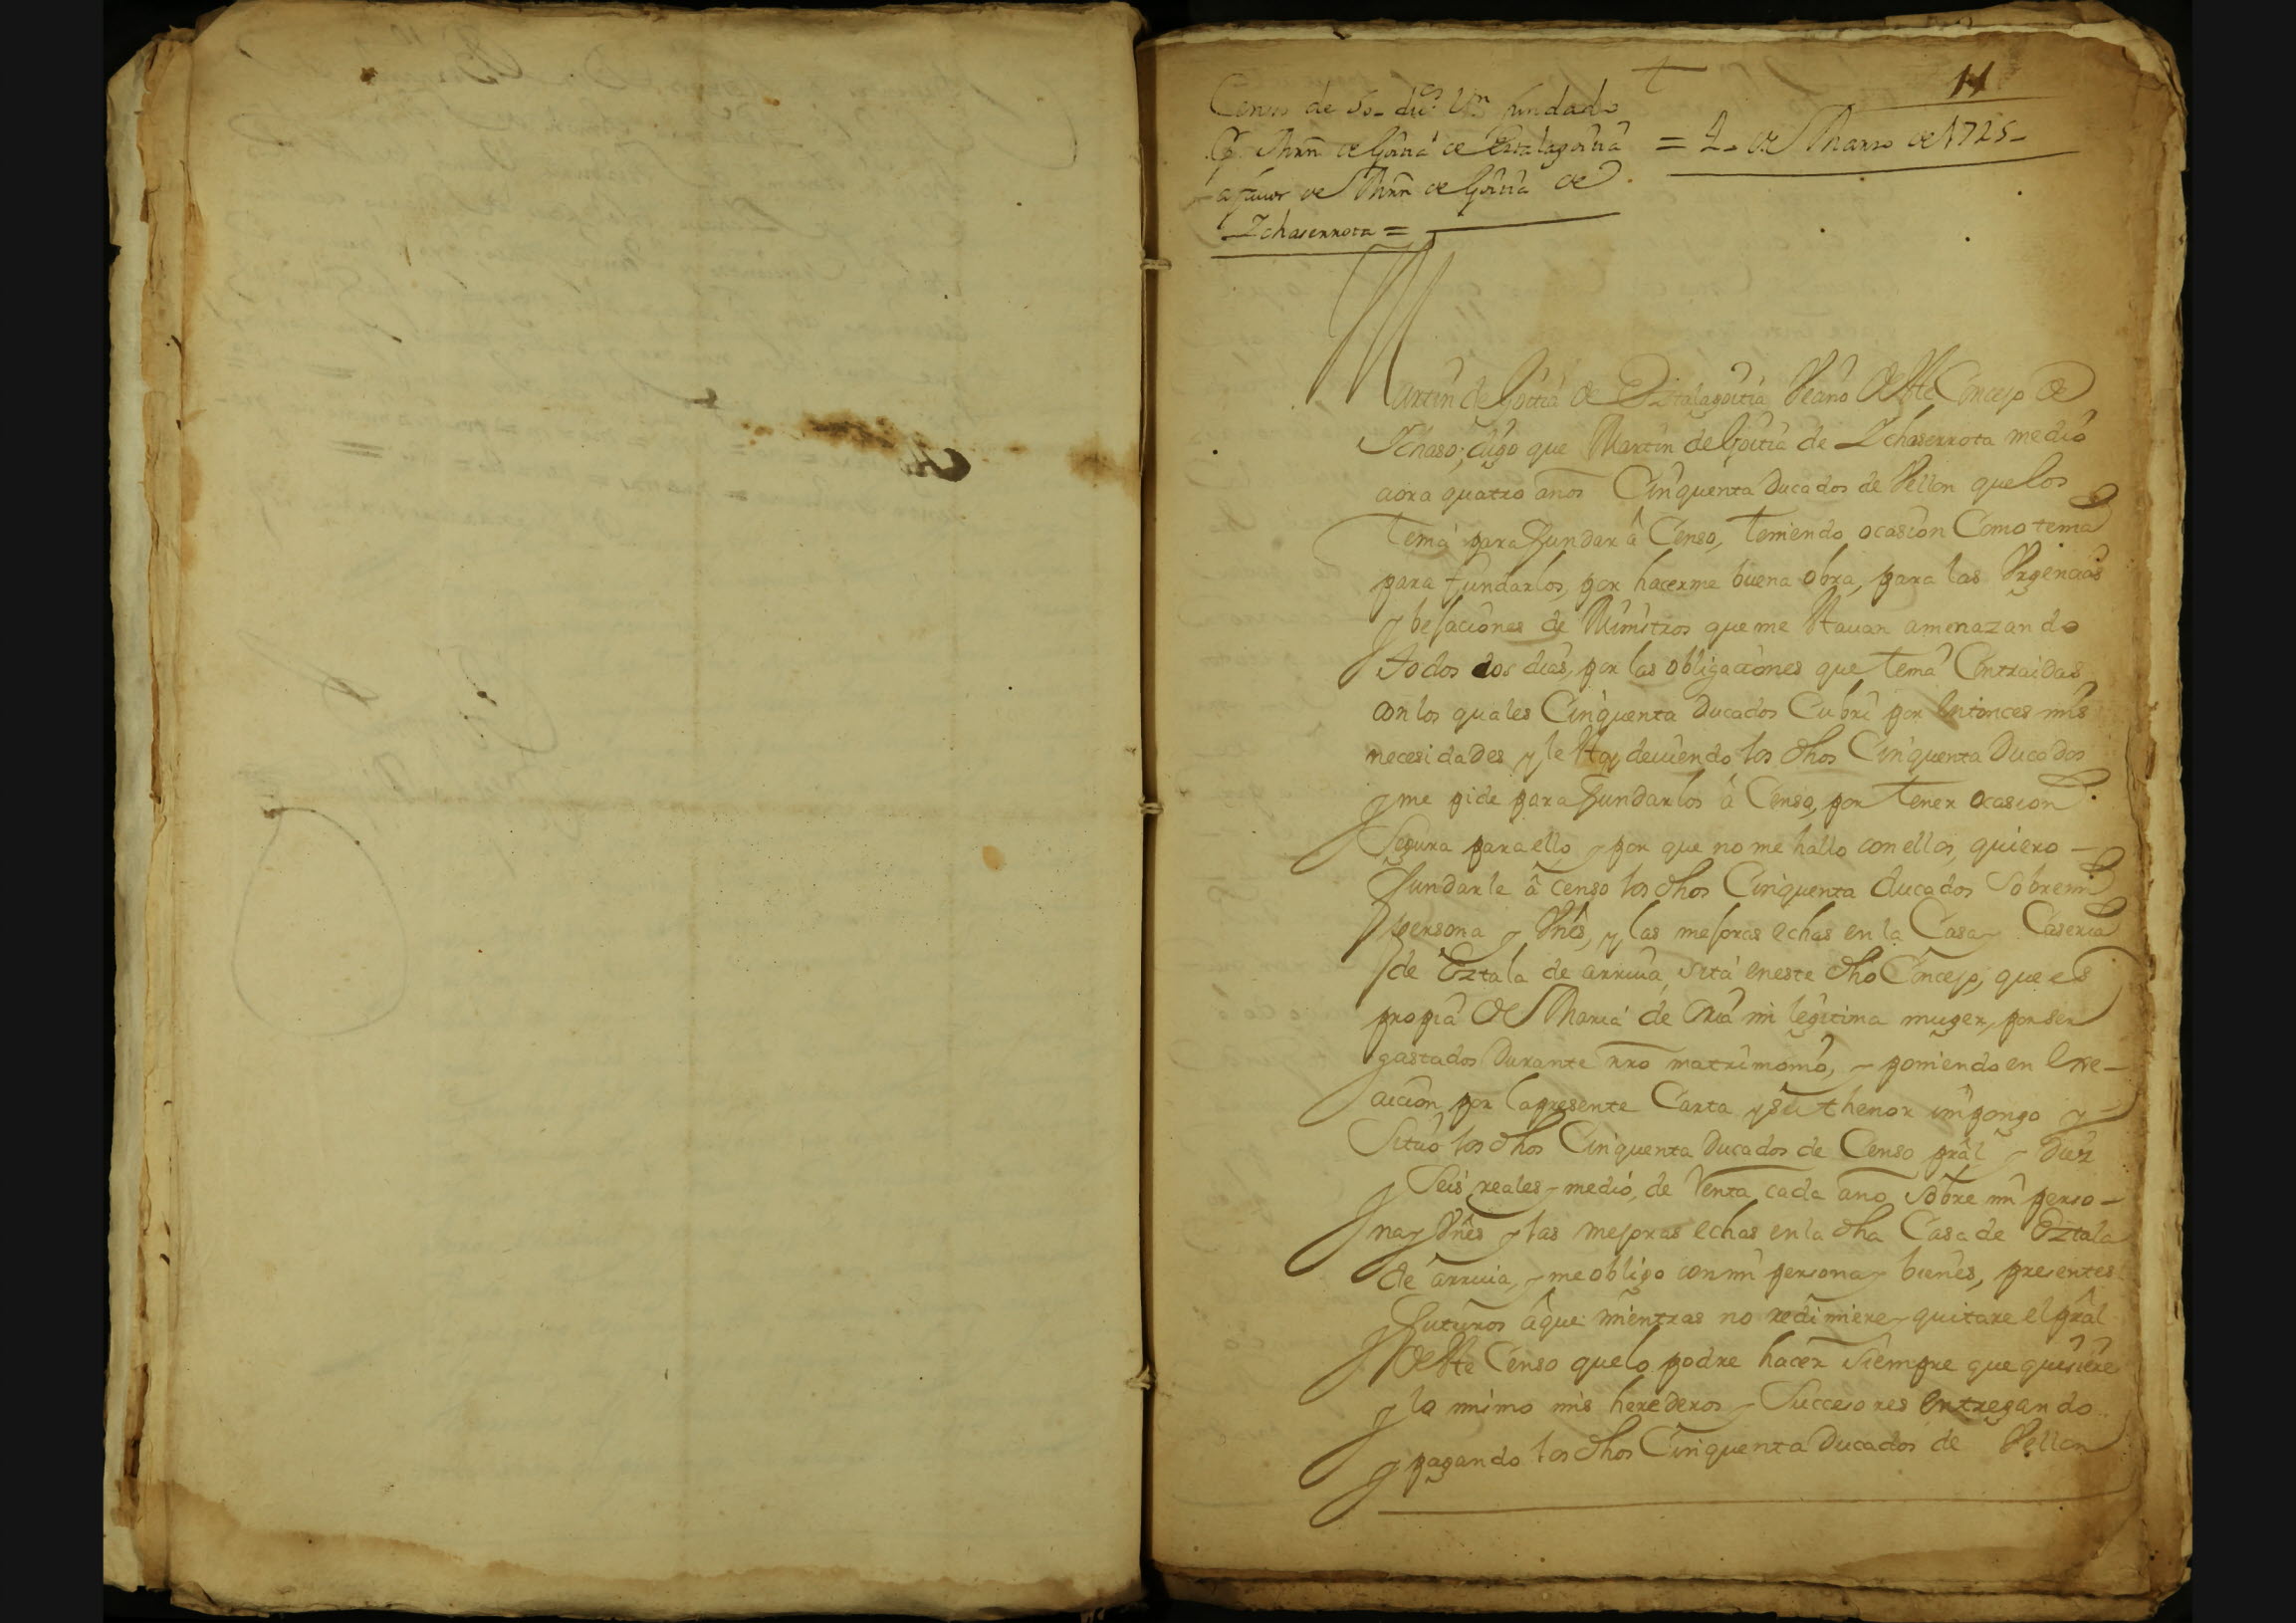 11
Censo de 50 duc.os Vn fundado
P. Mrn de Goitia de Eztalagoitia = 2 de Marzo de 1725
a favor de Mrn de Goitia de
Ichaserrota =
Martin de Goitia de Eztalagoitia Vecino de este Concejo de
Ichaso; digo que Martin de Goitia de Ichaserrota me dió
aora quatro anos Cinquenta Ducados de Vellon que los
tenia para fundar â Censo, teniendo ocasion Como tenia
para fundarlos, por hacerme buena obra, para las Vrgencias
y besaciones de Ministros que me stauan amenazando
todos los dias, por las obligaciones que tenia Contraidas
con los quales Cinquenta Ducados Cubri por entonces mis
necesidades y le stoy deuiendo los dhos Cinquenta Ducados
y me pide para fundarlos â Censo, por tener ocasion
Segura para ello, y por que no me hallo con ellos, quiero
fundarle â censo los dhos Cinquenta ducados sobre mi
persona y Vnes, y las mejoras echas en la Casa y Caseria
de Eztala de arriua, sita en este dho Concejo, que es
propia de Maria de Oria mi legitima muger, por ser
gastados Durante nro matrimonio, y poniendo en exe-
cucion, por la presente Carta y su thenor impongo y
Situo los dhos Cinquenta Ducados de Censo pral y diez
y Seis reales y medio, de renta cada ano sobre mi perso-
na y Vnes y las mejoras echas en la dha Casa de Eztala
de arriuia, y me obligo con mi persona y bienes, presentes
y futuros âque mientras no redimiere y quitare el pral
de ste Censo que lo podre hacer siempre que quisiere
y lo mimo mis herederos y Succesores entregando
y pagando los dhos Cinquenta Ducados de Vellon